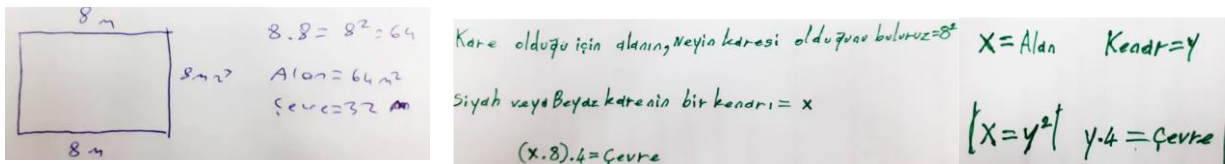 8 m
8.8 = 8² = 64
8 m
Alan = 64 m²
Çevre = 32 m
8 m
Kare olduğu için alanın, Neyin karesi olduğunu buluruz = 8²
Siyah veya Beyaz karenin bir kenarı = x
(x.8).4 = Çevre
X = Alan Kenar = y
|X = y²| y.4 = Çevre